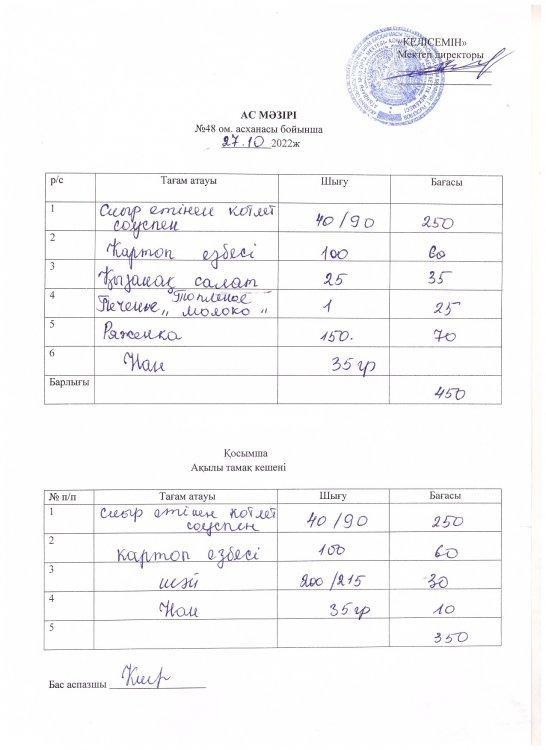 «КЕЛІСЕМІН»
Мектеп директоры
АС МӘЗІРІ
№48 ом. асханасы бойынша
27.10 2022ж
р/с Тағам атауы Шығу Бағасы
1 Сиыр етінен котлет соуспен 40/90 250
2 Картоп езбесі 100 60
3 Қызанақ салат 25 35
4 Печенье „Топленое молоко" 1 25
5 Ряженка 150. 70
6 Нан 35гр
Барлығы 450
Қосымша
Ақылы тамақ кешені
№ п/п Тағам атауы Шығу Бағасы
1 сиыр етінен котлет соуспен 40/90 250
2 картоп езбесі 100 60
3 шәй 200/215 30
4 Нан 35гр 10
5 350
Бас аспазшы